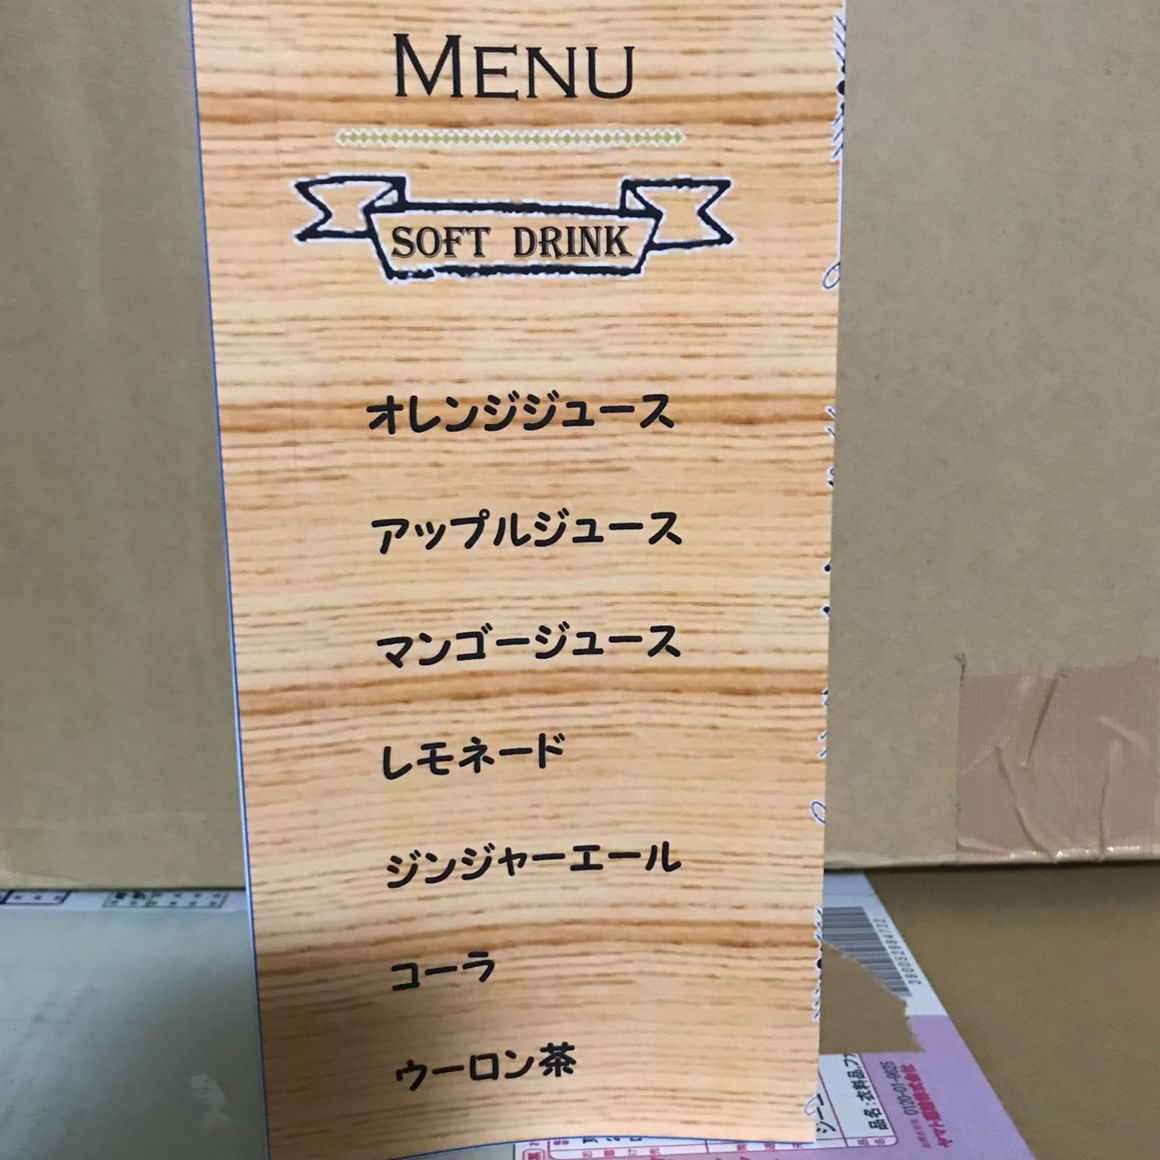 MENU
SOFT DRINK
オレンジジュース
アップルジュース
マンゴージュース
レモネード
ジンジャーエール
コーラ
ウーロン茶
品名:衣料品,ファ
0120-01-9625
ヤマト運輸株式会社